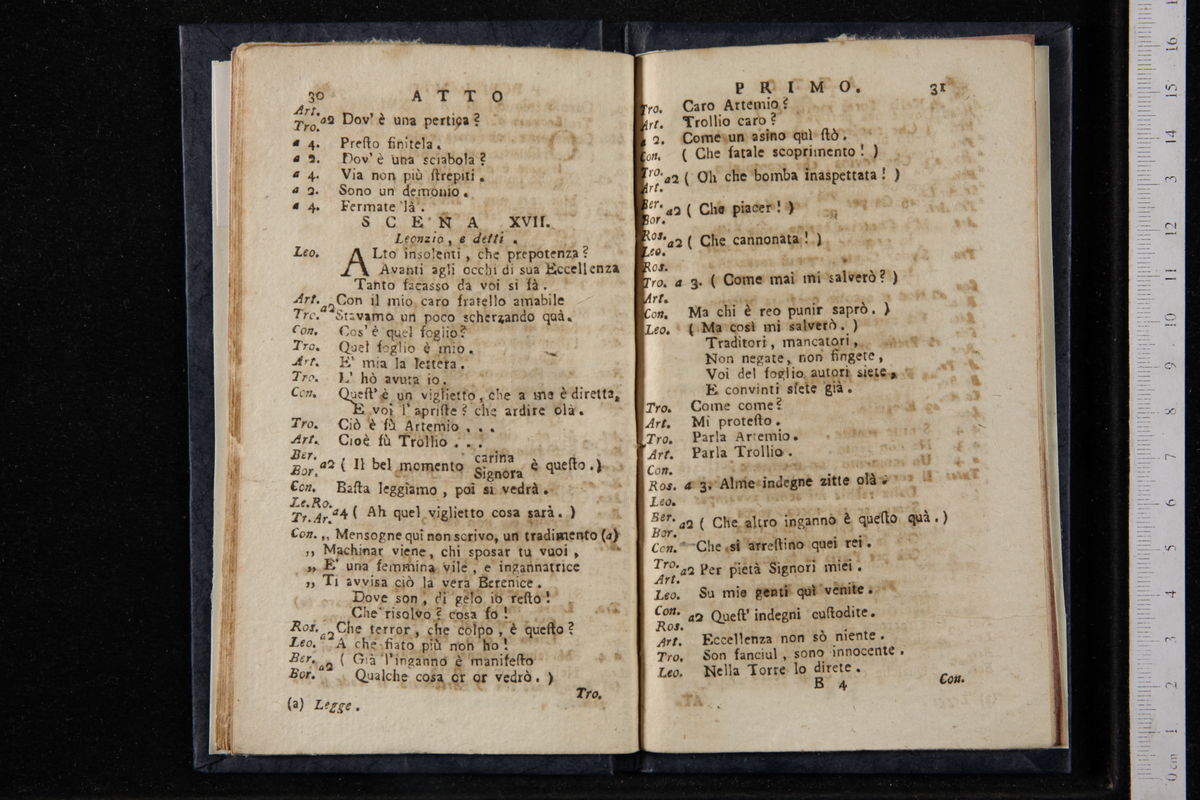 30 ATTO
Art.
Tro. a2 Dov' è una pertica?
a 4. Presto finitela.
a 2. Dov' è una sciabola?
a 4. Via non più strepiti.
a 2. Sono un demonio.
a 4. Fermate là.
SCENA XVII.
Leonzio, e detti.
Leo. ALto insolenti, che prepotenza?
Avanti agli occhi di sua Eccellenza
Tanto facasso da voi si fà.
Art. a2 Con il mio caro fratello amabile
Tro. Stavamo un poco scherzando quà.
Con. Cos' è quel foglio?
Tro. Quel foglio è mio.
Art. E' mia la lettera.
Tro. L' hò avuta io.
Con. Quest' è un viglietto, che a me è diretta,
E voi l'apriste? che ardire olà.
Tro. Ciò è fù Artemio . . .
Art. Cioè fù Trollio . . .
Ber.
Bor. a2 ( Il bel momento carina
Signora è questo. )
Con. Basta leggiamo, poi si vedrà.
Le.Ro.
Tr.Ar. a4 ( Ah quel viglietto cosa sarà. )
Con. ,, Mensogne quì non scrivo, un tradimento (a)
,, Machinar viene, chi sposar tu vuoi,
,, E' una femmina vile, e ingannatrice
,, Ti avvisa ciò la vera Berenice.
Dove son, di gelo io resto!
Che risolvo? cosa fo!
Ros. a2 Che terror, che colpo, è questo?
Leo. A che fiato più non ho!
Ber. a2 ( Già l'inganno è manifesto
Bor. Qualche cosa or or vedrò. )
Tro.
(a) Legge.
PRIMO. 31
Tro. Caro Artemio?
Art. Trollio caro?
a 2. Come un asino quì stò.
Con. ( Che fatale scoprimento! )
Tro.
Art. a2 ( Oh che bomba inaspettata! )
Ber.
Bor. a2 ( Che piacer! )
Ros.
Leo. a2 ( Che cannonata! )
Ros.
Tro. a 3. ( Come mai mi salverò? )
Art.
Con. Ma chi è reo punir saprò. )
Leo. ( Ma così mi salverò. )
Traditori, mancatori,
Non negate, non fingete,
Voi del foglio autori siete,
E convinti siete già.
Tro. Come come?
Art. Mi protesto.
Tro. Parla Artemio.
Art. Parla Trollio.
Con.
Ros. a 3. Alme indegne zitte olà.
Leo.
Ber.
Bor. a2 ( Che altro inganno è questo quà. )
Con. Che si arrestino quei rei.
Tro.
Art. a2 Per pietà Signori miei.
Leo. Su mie genti quì venite.
Con.
Ros. a2 Quest' indegni custodite.
Art. Eccellenza non sò niente.
Tro. Son fanciul, sono innocente.
Leo. Nella Torre lo direte.
B 4 Con.
0 cm 1 2 3 4 5 6 7 8 9 10 11 12 13 14 15 16